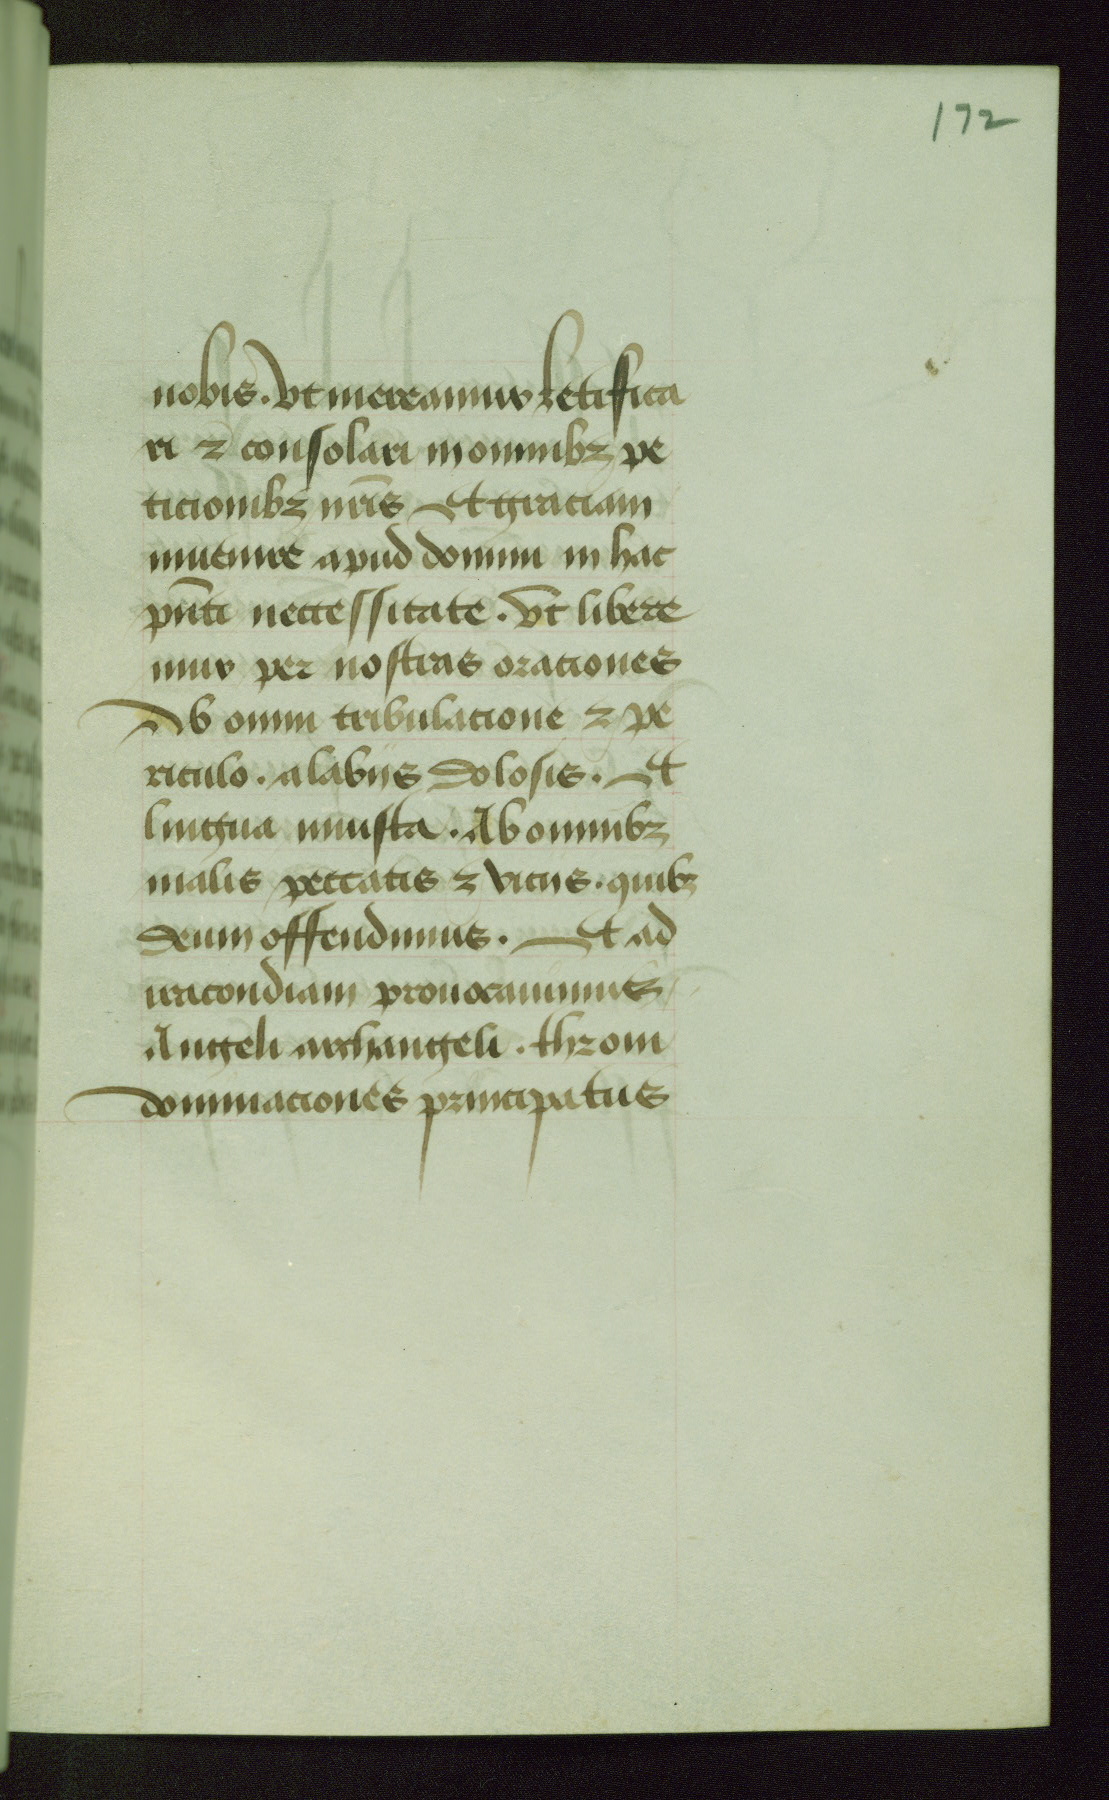 172
nobis. vt mereamur letifica
ri ⁊ consolari in omnibꝫ pe
ticionibꝫ nr̄is Et graciam
inuenire apud dominū in hac
pn̄ti neccessitate. vt libere
mur per nostras oraciones
Ab omni tribulacione ⁊ pe
riculo. a labiis dolosis. Et
lingua iniusta. Ab omnibꝫ
malis peccatis ⁊ viciis. quibꝫ
deum offendimus. Et ad
iracondiam prouocauimus
Angeli archangeli. throni
dominaciones principatus